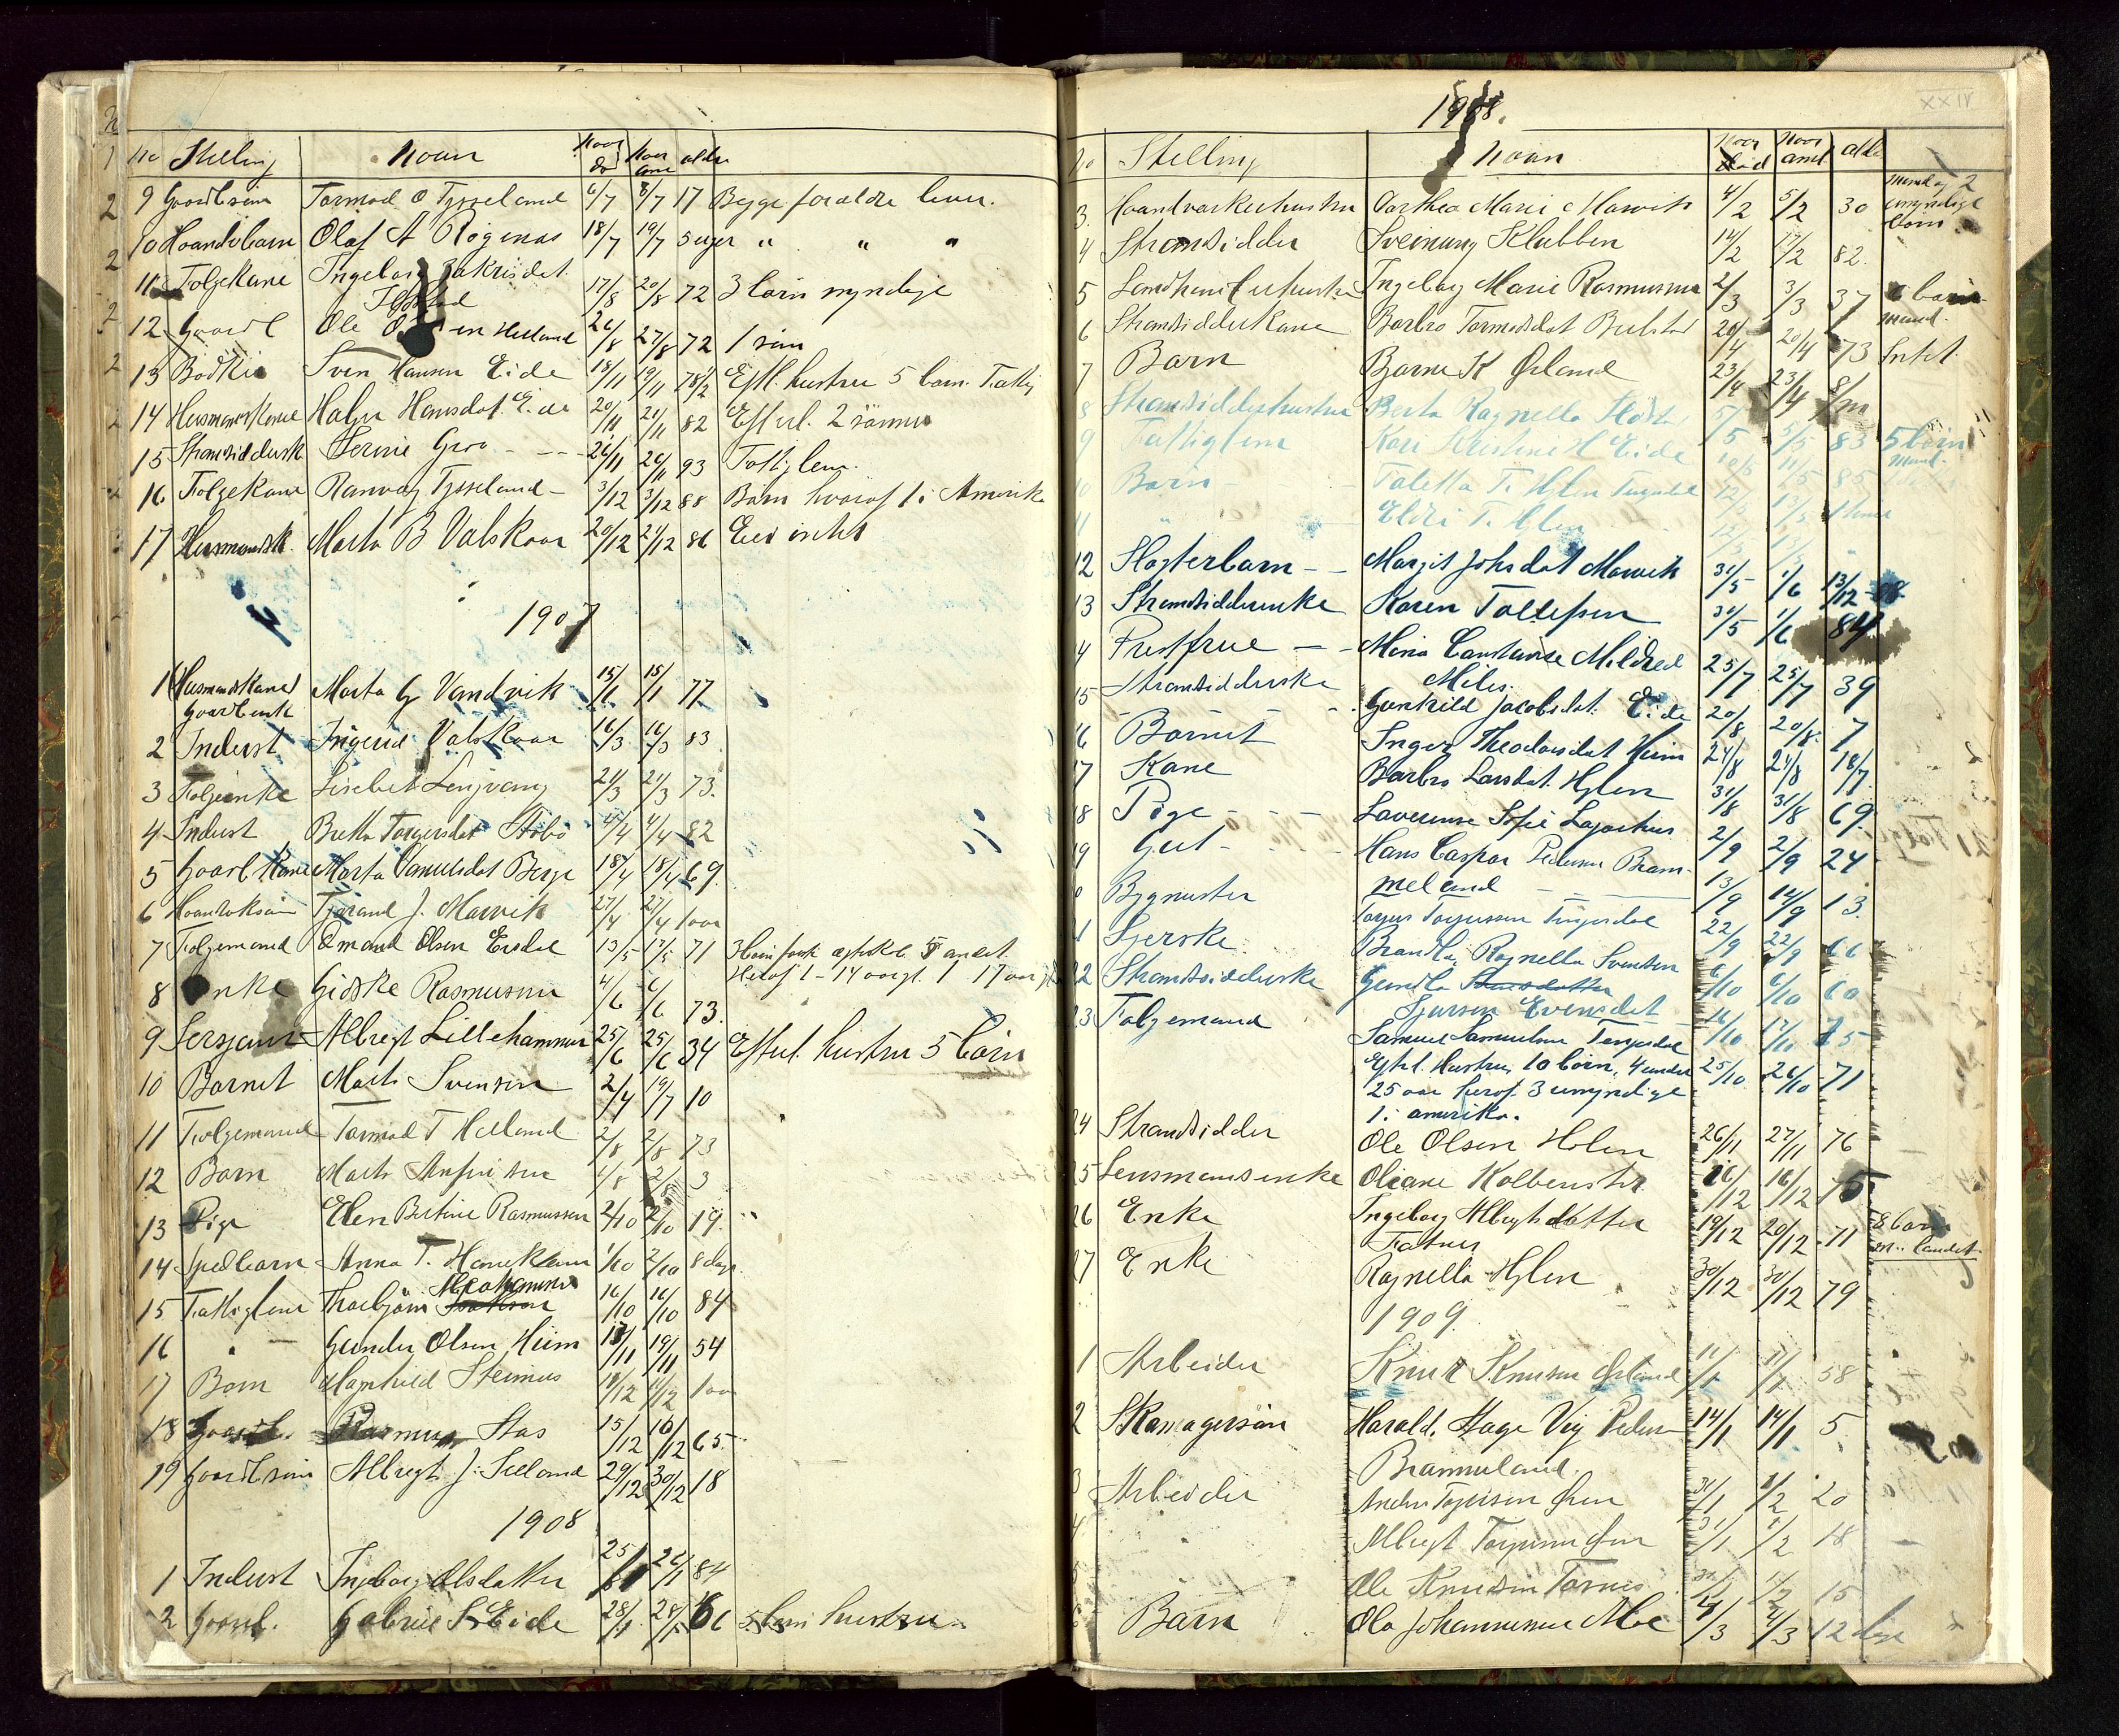 No Stelling Navn Naar død Naar anm alder
9 Gaardb søn Tormod O Tysseland 6/7 8/7 17 Begge forældre lever.
10 Haandvbarn Olaf A Røgenas 18/7 19/7 5 uger " " "
11 Folgekane Ingeborg Zakrisdat.
17/8 20/8 72 3 børn myndige
12 Gaardb Ole Helland 26/8 27/8 72 1 søn
13 Bødker Sven Hansen Eide 18/11 19/11 78 1/2 Eftl. hustru 5 børn. Fattig
14 Husmandskone Helga Hansdat. Eide 20/11 21/11 82 Efterl. 2 sønner
15 Strandsidderk Serine Groa - - - 26/11 26/11 93 Fattiglem.
16 Folgekane Ranvag Tysseland - 3/12 3/12 88 Børn hvoraf 1 i Amerika
17 Husmandsk. Marta B Valskaar 20/12 24/12 86 Eier intet
1907
1 Husmandskane Marta G Vandvik 15/1 15/1 77
Gaardb enk
2 Inderst Ingerid Valskaar 16/3 16/3 83
3 Folgeenke Lisebet Lengvang 21/3 21/3 73.
4 Inderst Britta Torgersdat Støbø 4/4 4/4 82
5 Gaardb Kane Marta Samuelsdat Berge 18/4 18/4 69.
6 Haandvksøn Tjerand J. Marvik 27/4 27/4 1 aar
7 Folgemand Omund Olsen Eisdal 13/5 17/5 71 3 børn første ægteskab 5 andet
Heraf 1 - 14 aargl. 1 17 aar
8 Enke Gidske Rasmussen 4/6 6/6 73.
9 Sersjant Albregt Lillehammer 25/6 25/6 34 Efterl. hustru 5 børn
10 Barnet Marta Svensen 2/7 19/7 10
11 Folgemand Tormod T Helland 2/8 2/8 73
12 Barn Marta 4/8 2/8 3
13 Pige Elen Bertine Rasmussen 2/10 2/10 19.
14 Spedbarn Anna T. Hanekam 1/10 2/10 8 dage
15 Fattiglem Thorbjørn 16/10 16/10 84
16 " Gunder Olsen Hiim 18/11 19/11 54
17 Barn Magnhild Steinnes 10/12 11/12 1 aar
18 Gaardb. Rasmus Aas 15/12 16/12 65
19 Gaardb søn Albregt J. Seeland 29/12 30/12 18
1908
1 Inderst Ingeborg Olsdatter 25/1 26/1 84
2 Gaardb. Gabriel S. Eide 28/1 28/1 66 5 børn hustru
1908.
XXIV
No Stelling Navn Naar død Naar anm alder
3. Haandværkerhustru Dorthea Marie Marvik 4/2 5/2 30 Mand og 2 umyndige børn
4 Strandsidder Sveinung Klubben 14/2 17/2 82.
5 Ingeborg Marie Rasmussen 2/3 3/3 37 6 børn mand.
6 Strandsidderkane Barbro Tormodsdat 20/4 20/4 73 Intet
7 Barn Bjarne K Ørland 23/4 23/4 8/m
8 Strandsidderhustru Berta Ragnella 5/5 5/5 83 5 børn mand.
9 Fattiglem Kari Kristine H Eide 10/5 11/5 85
10 Børn Toletta T. Hylen 12/5 13/5
11 Eldri T. Hylen 12/5 13/5
12 Slagterbarn - - Margit Johsdat Marvik 31/5 1/6 13/12
13 Strandsidderenke Karen Tollefsen 31/5 1/6 84
14 Prestfrue - - Mina Constance Mildred 25/7 25/7 39
Milis.
15 Strandsidderske - Gunhild Jacobsdat. Eide 20/8 20/8 7
16 Barnet Inger Theodorsdat Hiim 24/8 24/8 18/7.
17 Kane Barbro Larsdat. Hylen 31/8 31/8 69.
18 Pige - - - Laverense Sofie 2/9 2/9 24
19 Gut - Hans Caspar Pedersen Bram- 13/9 14/9 13.
meland
20 Bygmester Torger Torgersen 22/9 22/9 66
21 Ragnella Svendsen 6/10 6/10 60
22 Strandsidderske Gundla
Sjursen Evensdat 16/10 17/10 75
23 Folgemand Samuel Samuelsen
Eftrl. Hustru, 10 børn, 4 under 25/10 26/10 71
25 aar heraf 3 umyndige
1 i amerika.
24 Strandsidder Ole Olsen Holen 26/11 27/11 76
25 Lensmandsenke Oliane Kolbenstvt 16/12 16/12 75
26 Enke Ingeborg Albregtsdatter 19/12 20/12 71 8 børn
landet.
27 Enke Ragnella Hylen 30/12 30/12 79
1909.
1 Arbeider Knut Knutsen Ørland 11/1 11/1 58
2 Skomagersøn Harald. Aage Vig Pedersen 14/1 14/1 5
Brammeland.
3 Arbeider 31/1 1/2 20
4 Albregt 31/1 1/2 18
5 Ole Knudsen 31/1 1/2 15
6 Barn Ola Johannessen Moe 4/3 4/3 12 dage